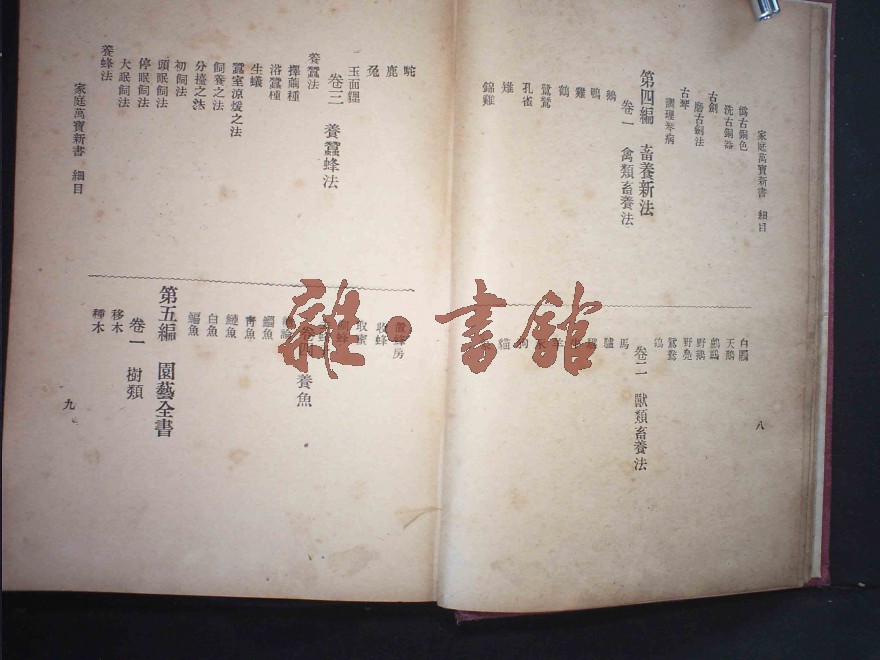 家庭萬寶新書 細目
僞古銅色
洗古銅器
古劍
磨古劍法
古琴
調理琴病
第四編 畜養新法
卷一 禽類畜養法
鵝
鴨
雞
鶴
鷺鷥
孔雀
雉
錦雞
白鷴
天鵝
鸕鷀
野鵝
野鳧
鴛鴦
鴿
卷二 獸類畜養法
馬
驢
騾
牛
羊
豕
狗
貓
八
駝
鹿
兔
玉面貍
卷三 養蠶蜂法
養蠶法
擇繭種
浴蠶種
生蟻
蠶室涼煖之法
飼養之法
分擡之法
初飼法
頭眠飼法
停眠飼法
大眠飼法
養蜂法
家庭萬寶新書 細目
置蜂房
收蜂
取蜜
卷四 養魚
青魚
鰱魚
白魚
鯿魚
第五編 園藝全書
卷一 樹類
移木
種木
九
雜·書館